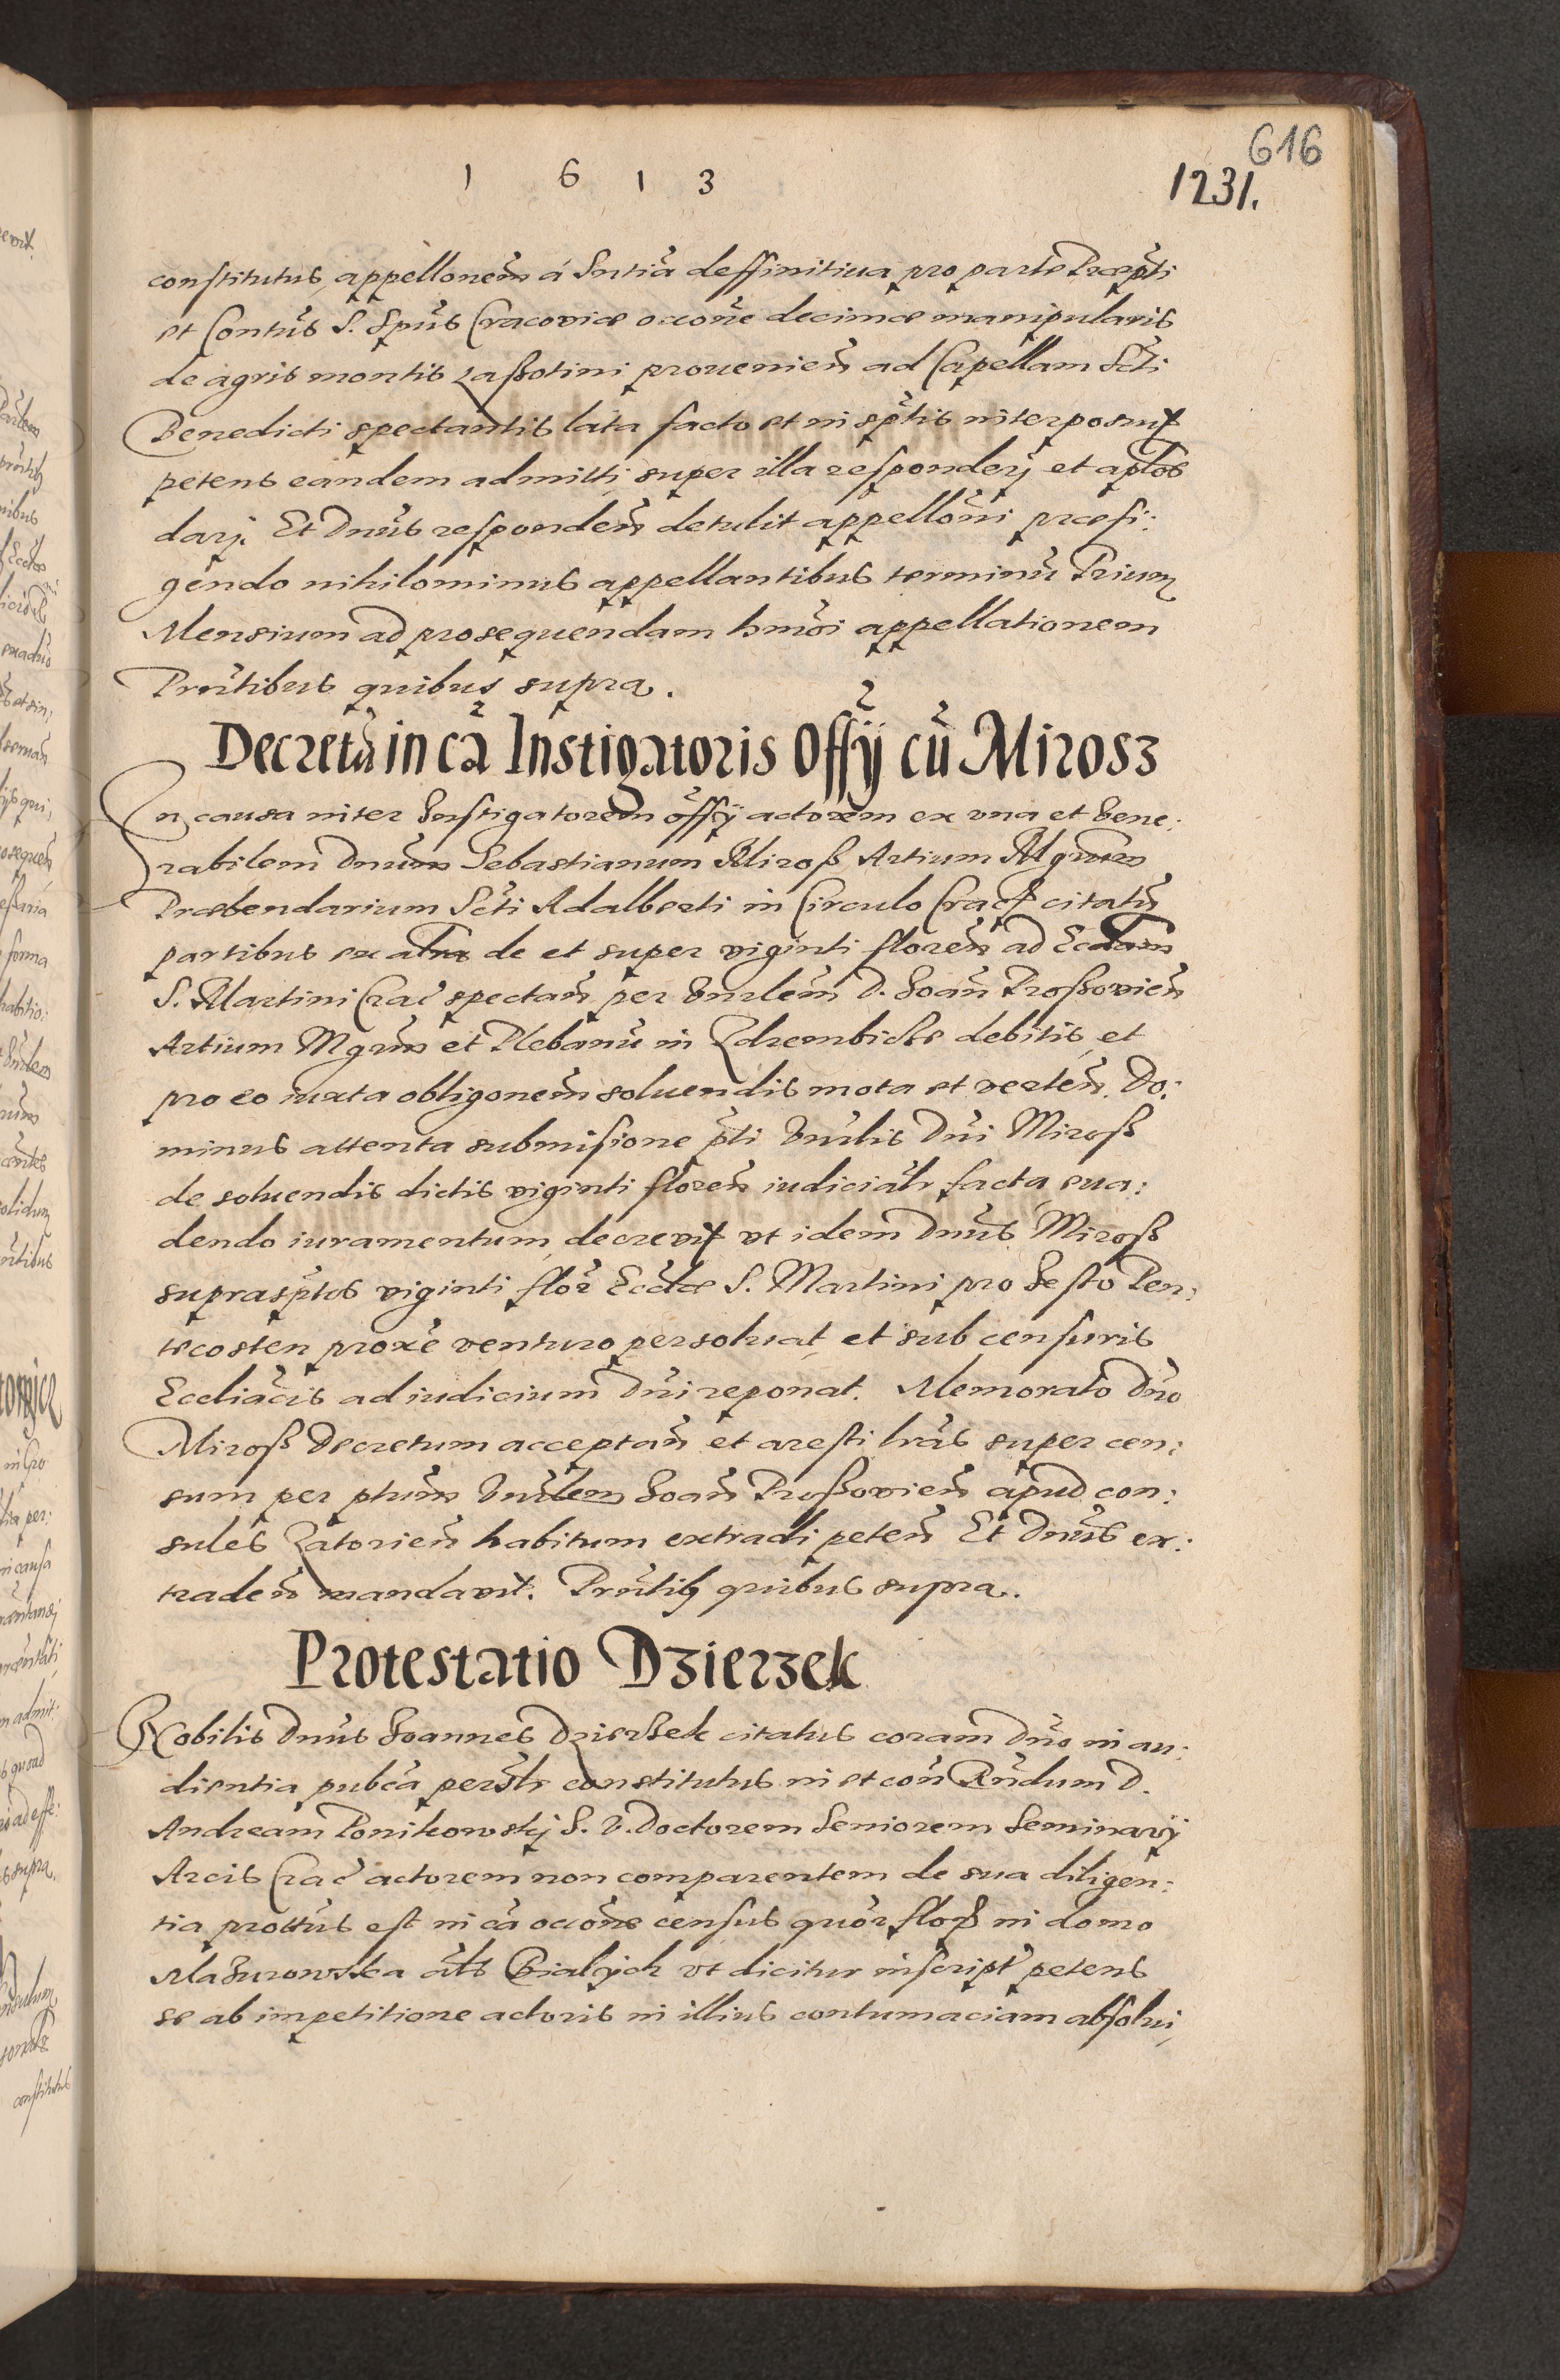 616
1 6 1 3
1231.
constitutus, appellonem á Sntia deffinitiua pro parte Præpti
et Contus S. Spus Cracoviæ occone decimæ manipularis
de agris montis Laßotini prouenien ad Capellam Scti
Benedicti spectantis lata facto et in sptis interposuit
petens eandem admitti super illa responderj et aptos
darj. Et Dnus responden detulit appelloni præfi:
gendo nihilominus appellantibus terminu Trium
Mensium ad prosequendam hmoi appellationem
Prntibus quibus supra.
Decretu in ca Instigatoris Offÿ cu Mirosz
In causa inter Instigatorem offÿ actorem ex vna et Vene:
rabilem Dnum Sebastianum Miroß Artium Mgrum
Præbendarium Scti Adalberti in Circulo Crac citatu
partibus ex altra de et super viginti floren ad Ecclam
S. Martini Crac spectan per Vnrlem D. Joan Proßovien
Artium Mgrum et Plebanu in Zdrembicze debitis, et
pro eo iuxta obligonem soluendis mota et verten. Do:
minus attenta submisione pti Vnrlis Dni Miroß
de soluendis dictis viginti floren iudicialr facta, eua:
dendo iuramentum, decrevit vt idem Dnus Miroß
suprasptos viginti flor Ecclæ S. Martini pro Festo Pen:
tecosten proxe venturo persoluat, et sub censuris
Eccliacis ad iudicium Dni reponat. Memorato Dno
Miroß Decretum acceptan et aresti lras super cen:
sum per ptum Vnrlem Joan Proßovien apud con:
sules Zatorien habitum extradi peten Et Dnus ex:
traden mandavit. Prntib quibus supra.
Protestatio Dzierzek
Nobilis Dnus Joannes Dzierzek citatus coram Dno in au:
dientia pubca persolr constitutus in et con Rndum D.
Andream Ponikowskj J. V. Doctorem Seniorem Seminarÿ
Arcis Crac actorem non comparentem de sua diligen:
tia prottus est in ca occone census quor flor in domo
Mazurowska als Bialych vt dicitur inscript petens
se ab impetitione actoris in illius contumaciam absolui,